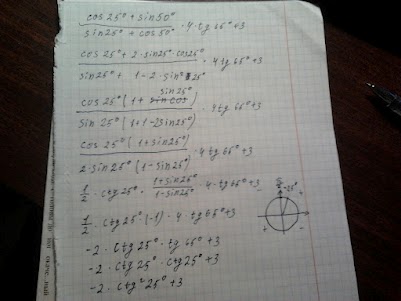 cos 25° + sin 50° / sin 25° + cos 50° · 4 tg 65° + 3
cos 25° + 2 · sin 25° · cos 25° / sin 25° + 1 - 2 · sin² 25° · 4 tg 65° + 3
cos 25° (1 + sin 25°) / sin 25° (1 + 1 - 2 sin 25°) · 4 tg 65° + 3
cos 25° (1 + sin 25°) / 2 · sin 25° (1 - sin 25°) · 4 tg 65° + 3
1/2 · ctg 25° · 1 + sin 25° / 1 - sin 25° · 4 · tg 65° + 3
1/2 · ctg 25° (-1) · 4 tg 65° + 3
-2 · ctg 25° · tg 65° + 3
-2 · ctg 25° · ctg 25° + 3
-2 · ctg² 25° + 3